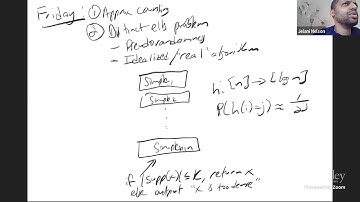 Friday: ① Approx counting
② Distinct elts problem
- Pseudorandomness
- Idealized/"real" algorithm
Sample 1
Sample 2
h: [n] → [log n]
P(h(i)=j) ≈ 1/2^j
if |supp(x)| ≤ K, return x
else output "x is too dense"
Jelani Nelson
Zoom